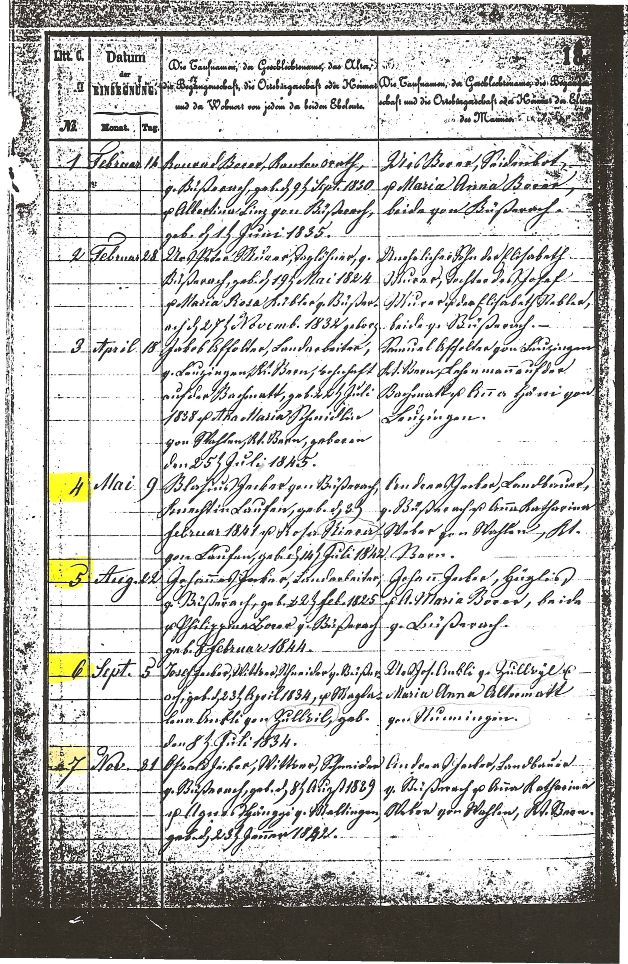 18
Litt. C.
Datum
der
EINSEGNUNG.
№
Monat. Tag.
Die Taufnamen, der Geschlechtsname, das Alter,
die Begangenschaft, die Ortsbürgerschaft oder Heimat
und der Wohnort von jedem der beiden Eheleute.
Die Taufnamen, der Geschlechtsname, die
und die Ortsbürgerschaft oder Heimat der Eltern
des Mannes
1 Februar 14
Konrad Borer, Kantonsrath,
v. Büßerach, geb. d. 9t Sept. 1830
u Albertina Linz von Büßerach,
geb. den 1t Juni 1835.
Urs Borer,
u Maria Anna Borer,
beide von Büßerach.
2 Februar 28
Taglöhner, v.
Büßerach, geb. d. 19t Mai 1824
u Maria Rosa Kubler v. Büßer-
ach d. 27t Novemb. 1832 geboren
Unehelicher Sohn der Elisabeth
Tochter des Josef
u der Elisabeth
beide v. Büßerach. —
3 April 18
Jakob Affolter, Landarbeiter,
v. Leuzingen, Kt. Bern, wohnhaft
auf der Bachmatt, geb. d. 2t Juli
1838 u Anna Maria Schmidlin
von Wahlen, Kt. Bern, geboren
den 25t Juli 1845.
Samuel Affolter von Leuzingen
Kt. Bern, Lehenmann auf der
Bachmatt u Anna Häni von
Leuzingen.
4 Mai 9
Blasius Jecker von Büßerach,
Knecht in Laufen, geb. d. 3t
Februar 1841 u Rosa
von Laufen, geb. d. 14t Juli 1842
Andreas Jecker, Landbauer,
v. Büßerach u Anna Katharina
Weber von Wahlen, Kt.
Bern.
5 Aug. 22
Johannes Jecker, Landarbeiter,
v. Büßerach, geb. d. 2t Feb. 1825
u Philippina Borer v. Büßerach
geb. 8 Februar 1844.
Johann Jecker,
u A. Maria Borer, beide
v. Büßerach.
6 Sept. 5
Josef Jecker, Wittwer, Schneider v. Büßer-
ach, geb. d. 23t April 1834, u Magda-
lena Ankli von Zullwil, geb.
den 8t Juli 1834.
Urs Jos. Ankli v. Zullwyl u
Maria Anna Altermatt
von Nunningen.
7 Nov. 21
Jecker, Wittwer, Schneider
v. Büßerach, geb. d. 8t August 1839
u Agnes Hänggi v. Meltingen
geb. d. 25t Jenner 1842.
Andreas Jecker, Landbauer
v. Büßerach u Anna Katharina
Weber von Wahlen, Kt. Bern.